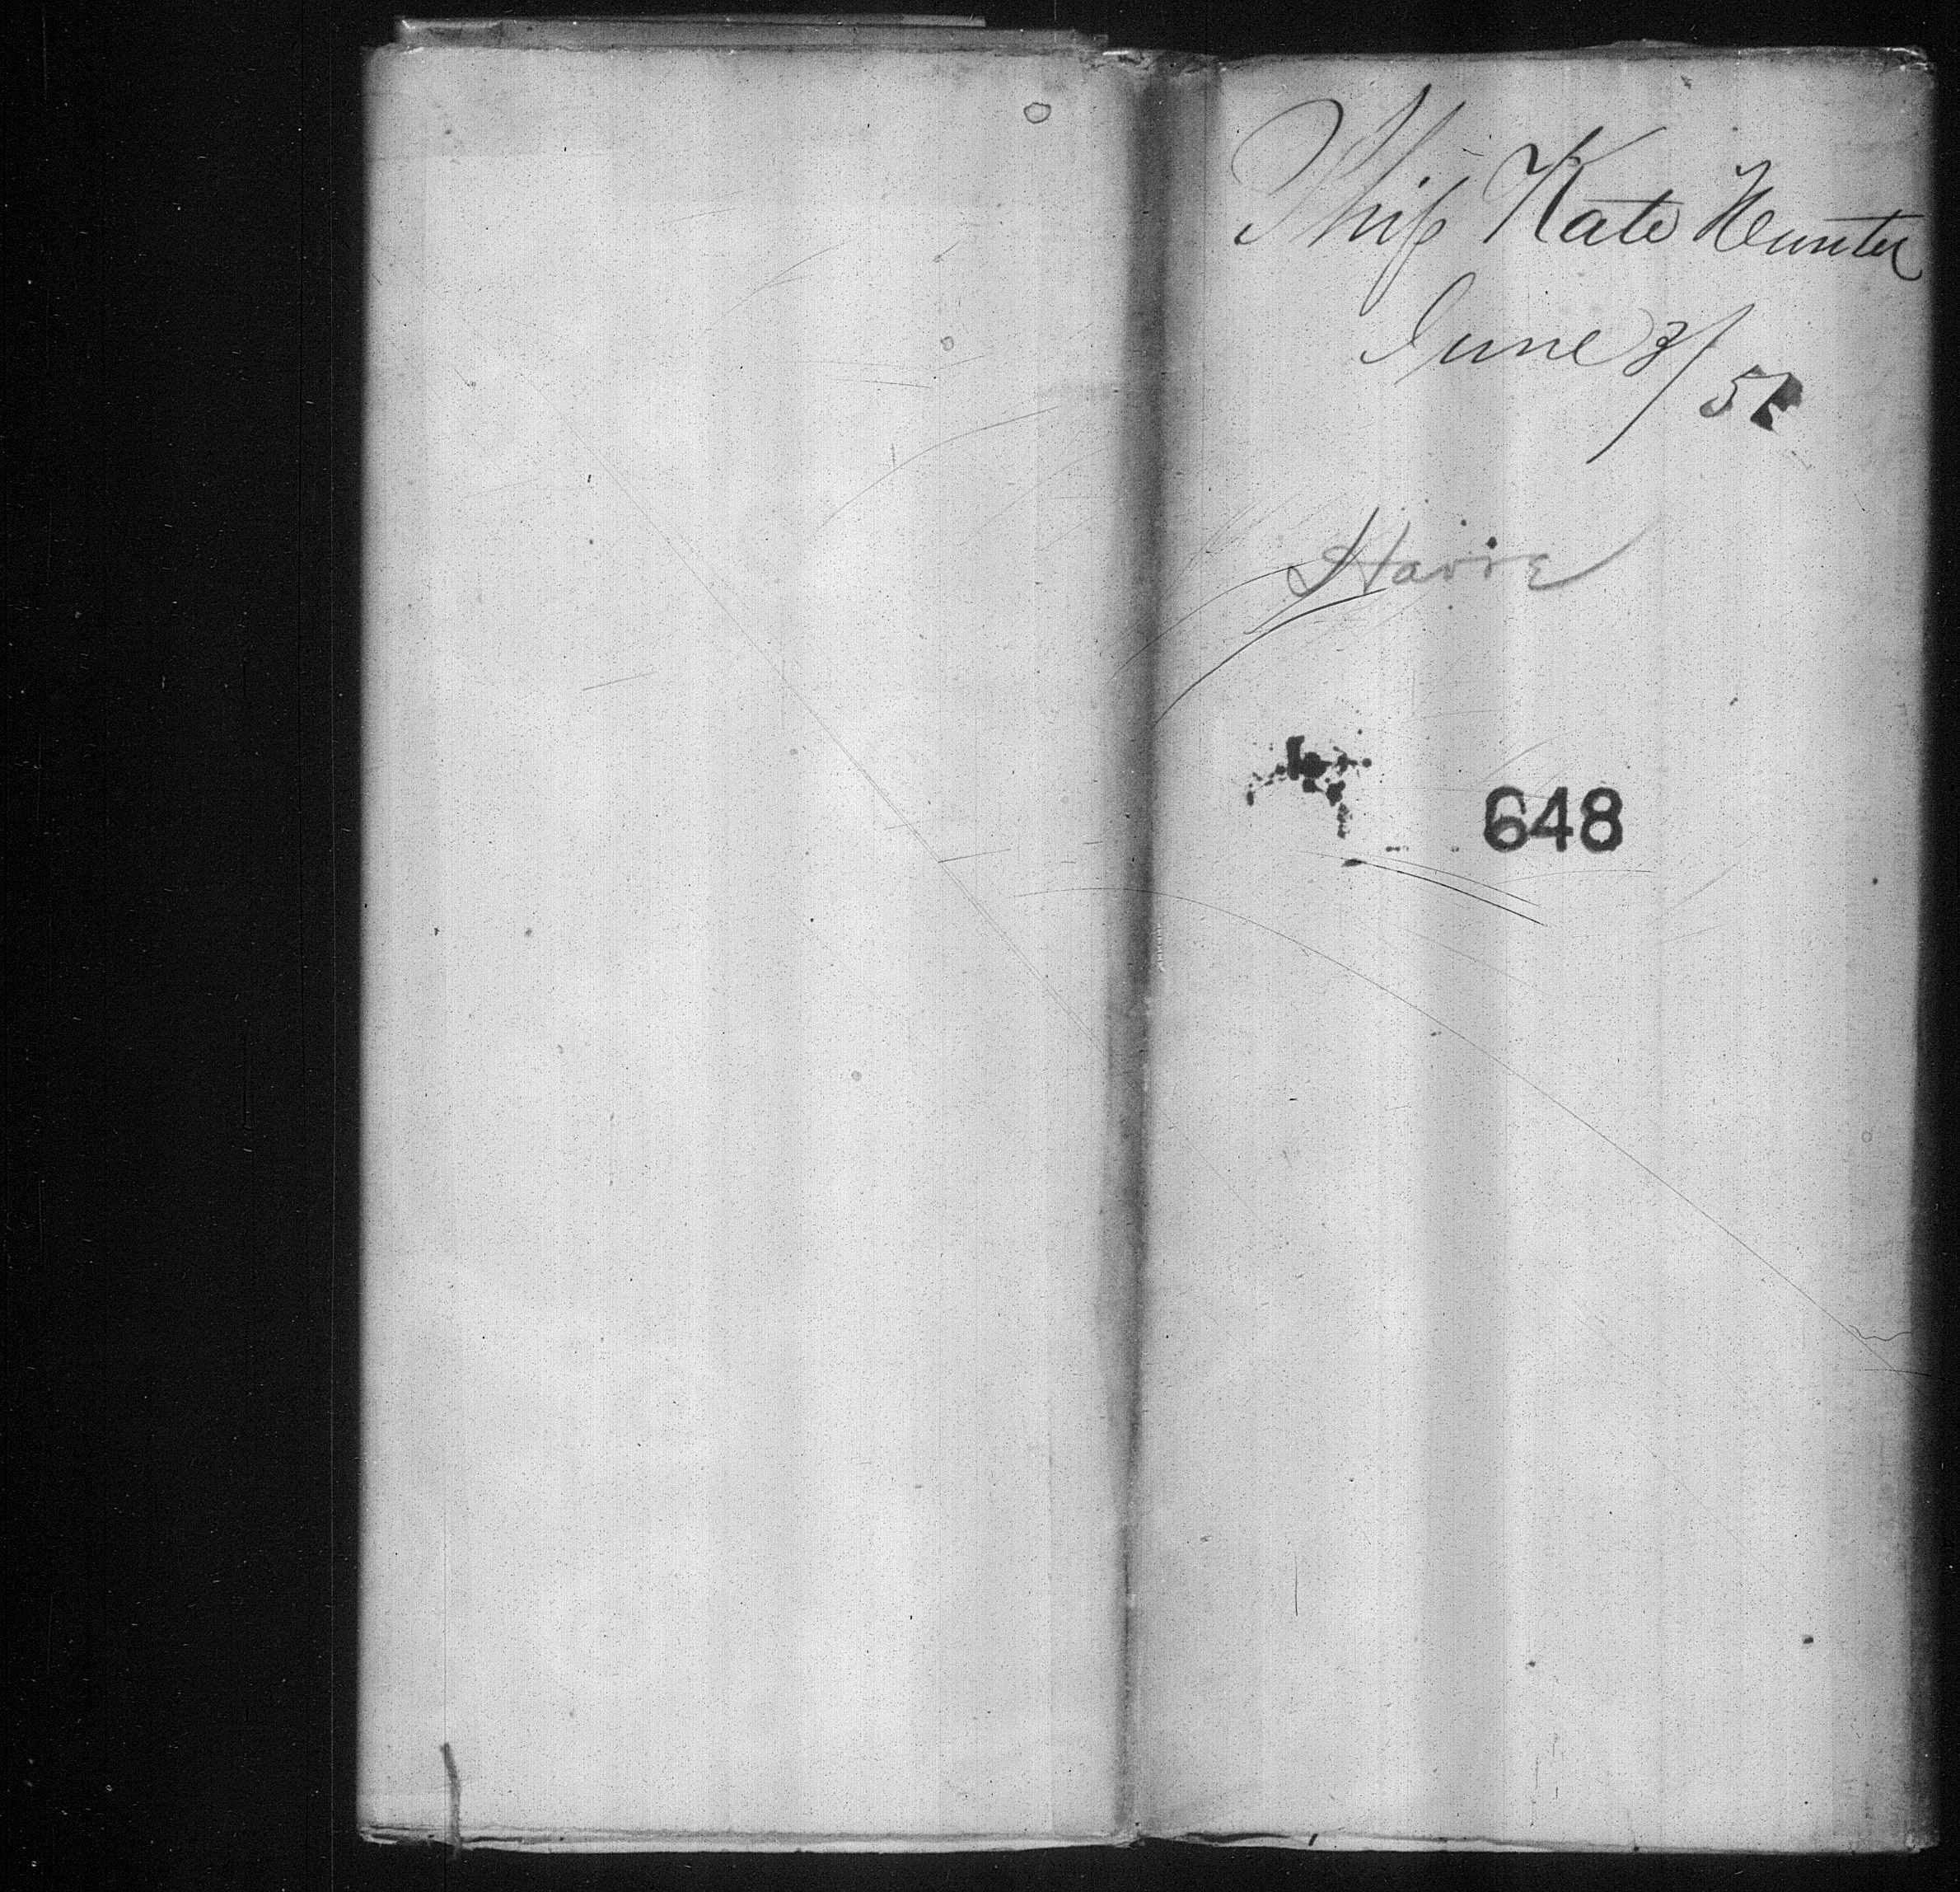 Ship Kate Hunter
June 3/
Havre
648